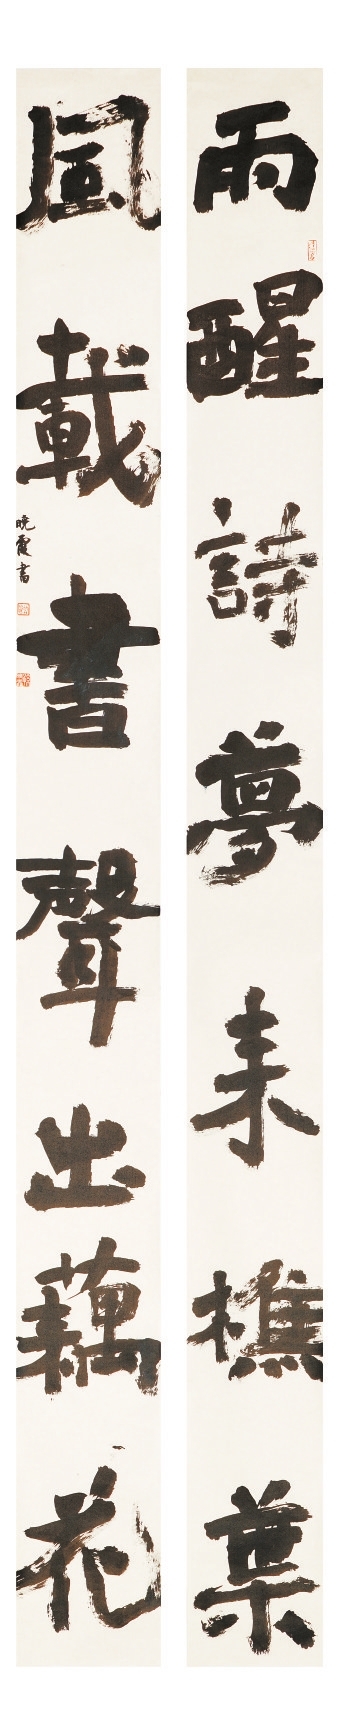 雨醒詩夢来樵葉
風載書聲出藕花
晚霞書